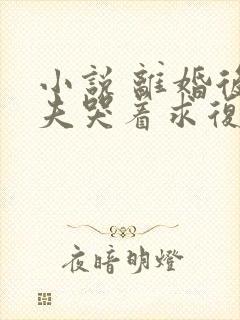 小說 離婚後
夫哭着求復
夜暗明燈